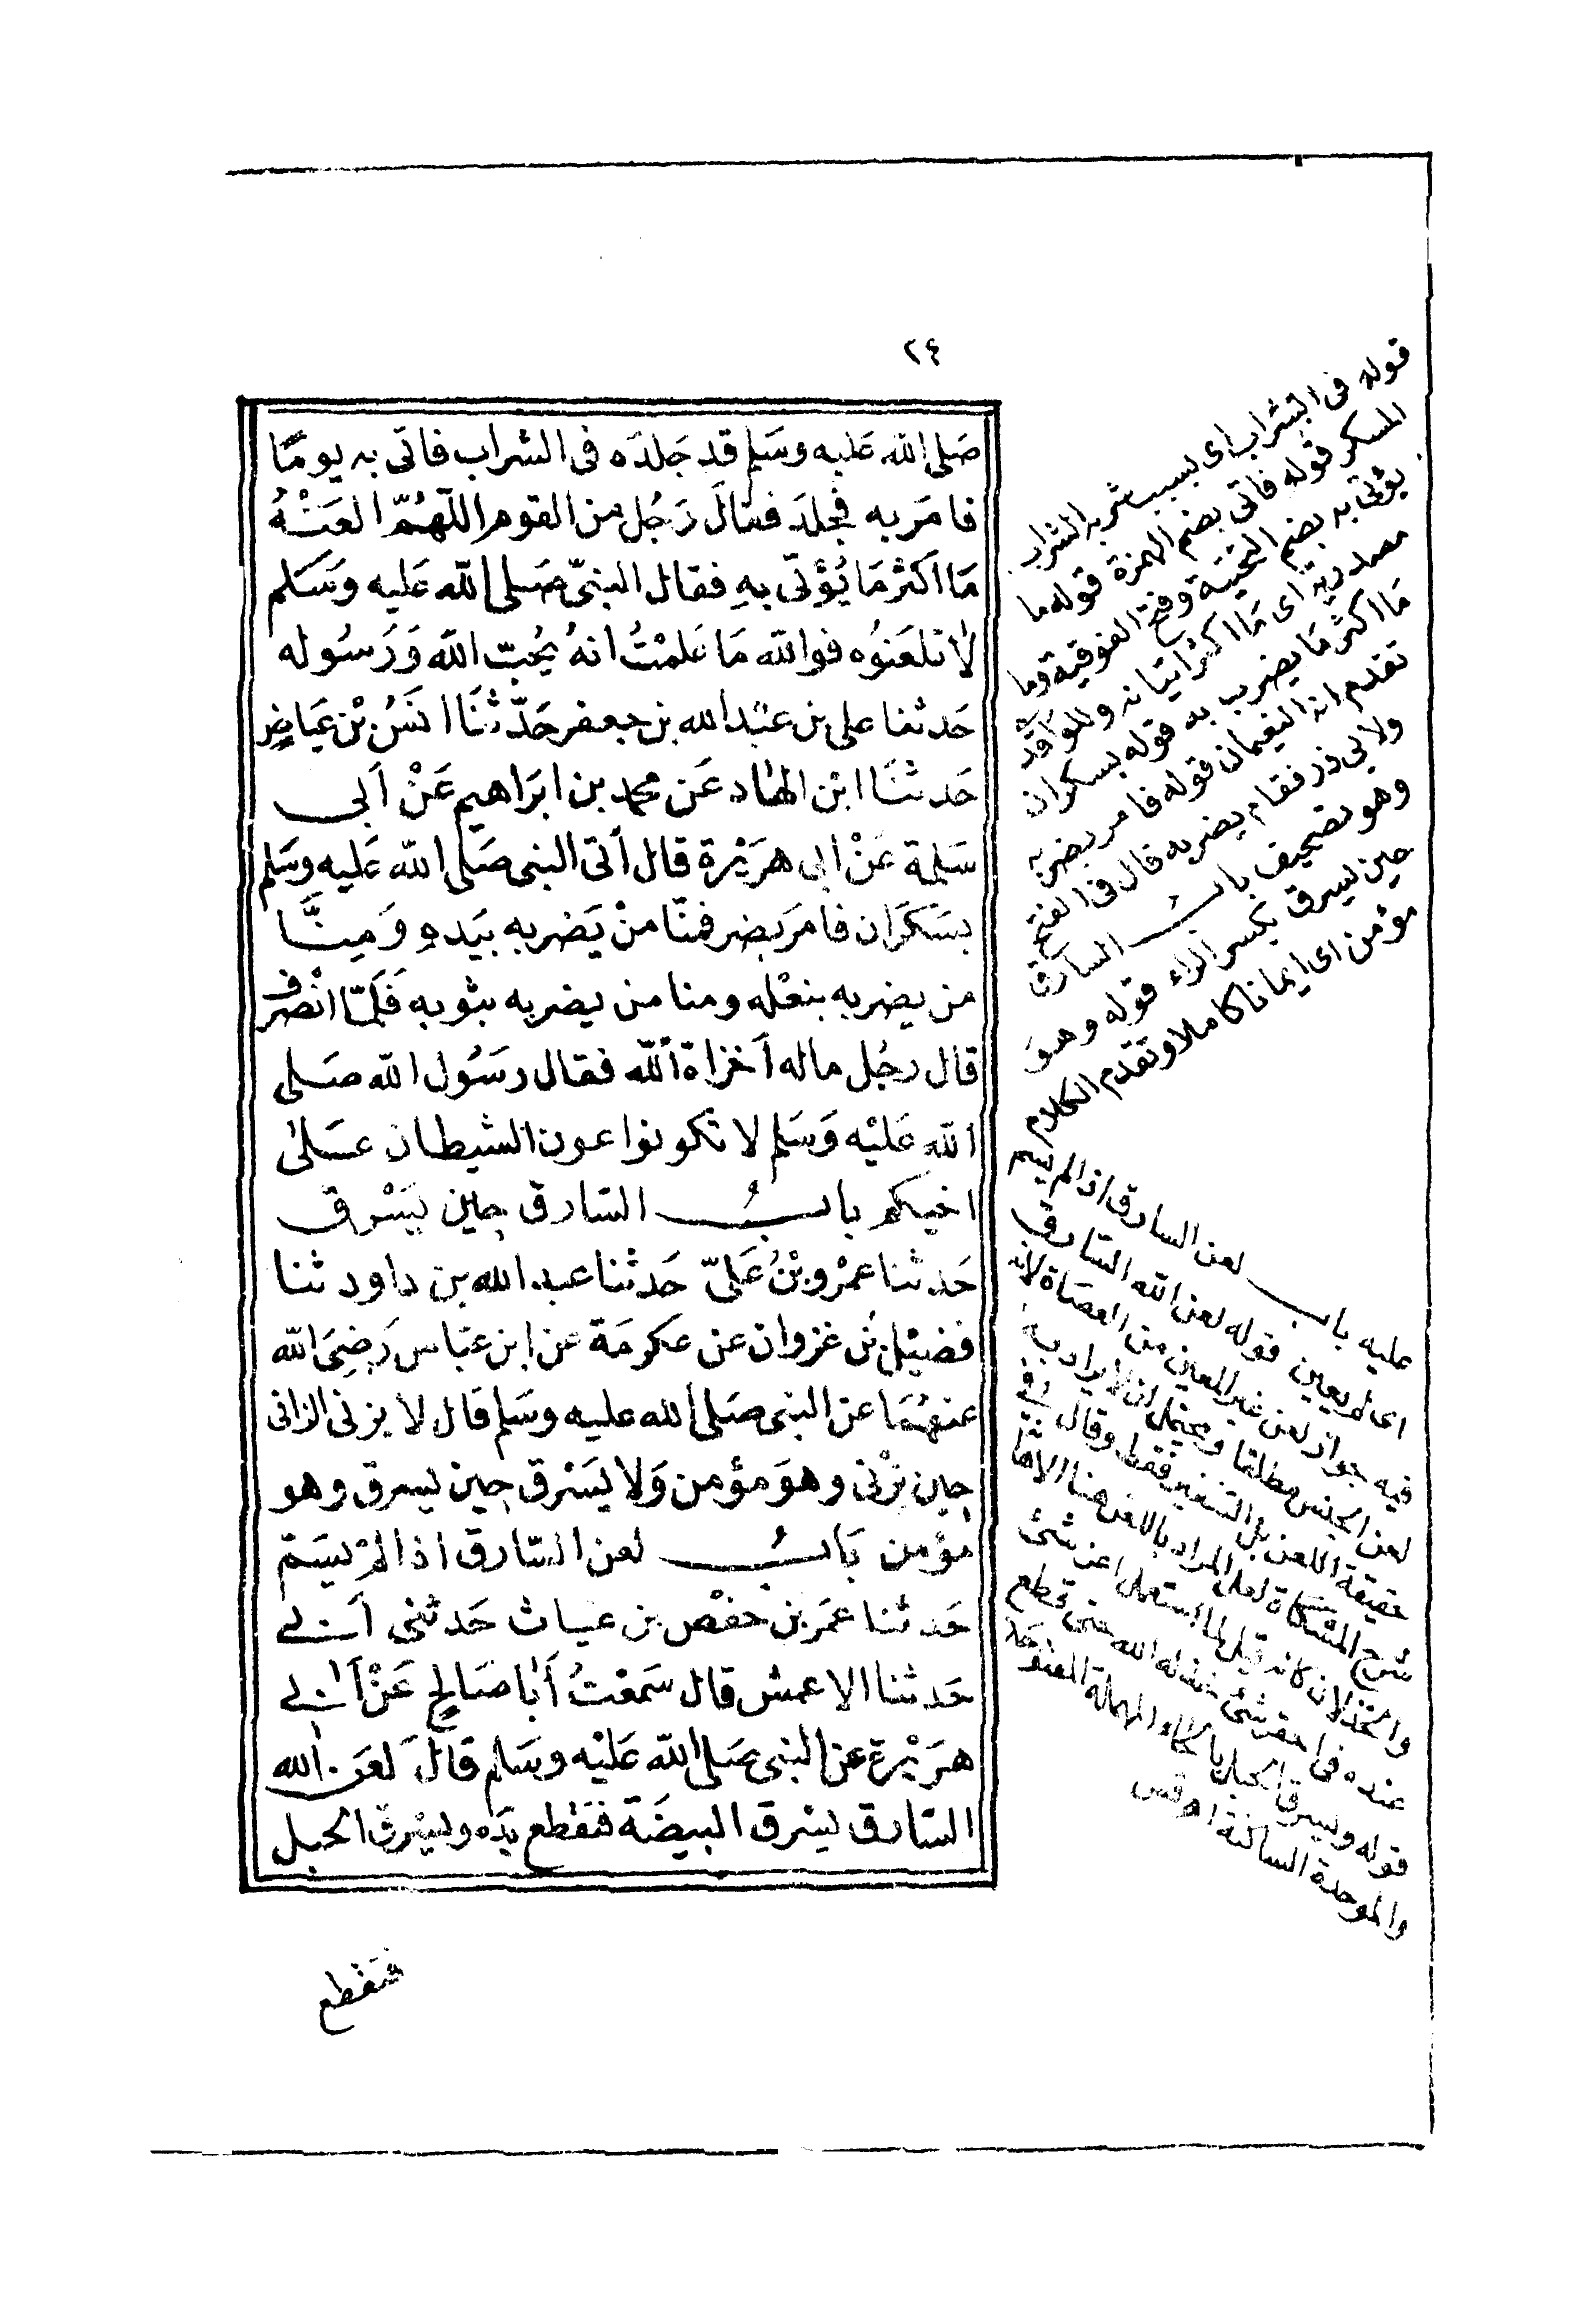 ٢٤
صَلى الله عَليه وسَلم قد جَلدَه فى الشراب فاتى به يومًا
فامَر به فجلدَ فقالَ رَجُل من القوم اللّهُمّ العَنْهُ
مَا اكثر مَا يُؤتى بهِ فقال النبىّ صَلى الله عَليه وَسَلم
لا تلعَنوُه فوالله مَا عَلمْتُ انهُ يُحِبّ اللهَ وَرَسُوله
حَدثنا على بن عبْد الله بن جعفر حَدّثنَا انسُ بْن عيَاضٍ
حَدثنَا ابن الهَاد عَن محمد بن ابرَاهيم عَنْ اَبى
سَلمة عَنْ ابى هرَيْرة قال أتى النبى صَلى الله عَليه وسَلم
بسَكرَان فامرَ بضربه فمنّا منْ يَضربه بيَدهِ وَمِنَّا
من يضربه بنعْله ومنا من يضربه بثوبه فَلَمّا انْصَرف
قال رجُل ماله أخزاهُ الله فقال رسُول الله صَلى
الله عَليْه وَسَلم لا تكونوا عون الشيطان عَلىٰ
اخيكم بابُ السَارق حِين يَسْرق
حَدثنا عمْرو بْنُ عَلىّ حَدثنا عبد الله بن داود ثنا
فضيْل بْن غزوان عن عكرمَة عن ابن عبّاس رَضِىَ الله
عنهُمَا عن النبى صَلى الله عليه وسَلم قال لا يزنى الزانى
حِين يزْنى وهوَ مؤمن وَلا يَسْرق حِين يسرق وهو
مؤمن بَابُ لعن السَّارق اذا لمْ يسَمّ
حَدثنا عمَر بن حفْص بن غياث حَدثنى أبى
حَدثنا الاعمش قال سَمعْتُ أبَا صَالحٍ عَنْ أبى
هرَيْرة عن النبى صَلى الله عَليْه وسَلم قالَ لعَن الله
السَّارق يسْرق البيضَة فتقطع يَده ويسْرق الحبل
فتقطع
قوله فى الشراب اى بسبب شربه الشراب
المسكر قوله فاتى بضم الهمزة قوله ما
يؤتى به بضم التحتية وفتح الفوقية وما
مصدرية اى مَا اكثر اتيانه وللواقدى
مَا اكثر مَا يضرب به قوله بسكران
تقدم انه النعيمان قوله فامر بضربه
ولابى ذر فقام يضربه قال فى الفتح
وهو تصحيف باب السارق
حين يسرق بكسر الراء قوله وهوَ
مؤمن اى ايمانا كاملا وتقدم الكلام
عليه باب لعن السارق اذا لم يسم
اى لم يعين قوله لعن الله السَارق
فيه جواز لعن غير المعين من العصَاة لانه
لعن الجنس مطلقا ويحتمل ان لا يراد به
حقيقة اللعن بل التنفير فقط وقال فى
شرح المشكاة لعل المراد باللعن هنا الاهانة
والخذلان كانه قيل لما استعمل اعز شئ
عنده فى احقر شئ خذله الله حتى قطع
قوله ويسرق الحبل بالحاء المهملة المفتوحة
والموحدة الساكنة